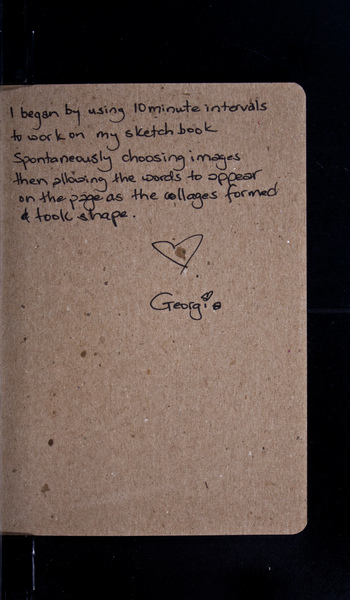 I began by using 10 minute intervals
to work on my sketch book
Spontaneously choosing images
then allowing the words to appear
on the page as the collages formed
& took shape.
Georgia